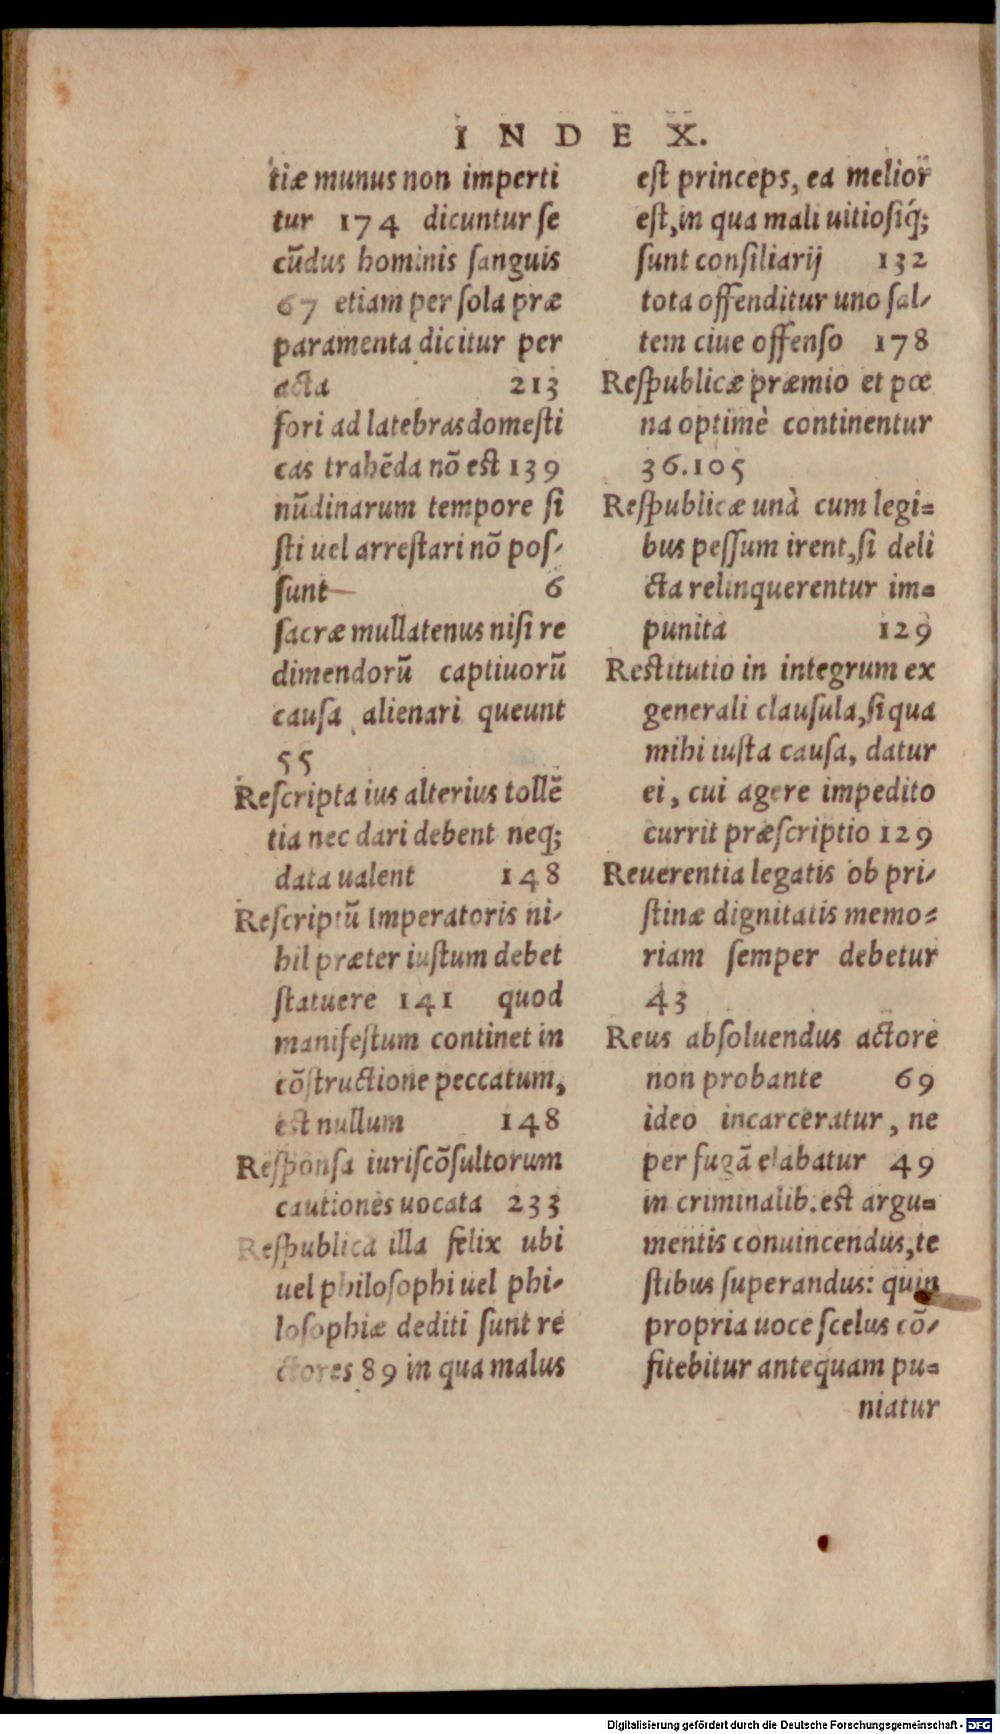 INDEX.
tiæ munus non imperti
tur 174 dicuntur ſe
cūdus hominis ſanguis
67 etiam per ſola præ
paramenta dicitur per
acta 213
fori ad latebras domeſti
cas trahēda nō est 139
nūdinarum tempore ſi
ſti uel arreſtari nō poſ-
ſunt 6
ſacræ mullatenus niſi re
dimendorū captiuorū
cauſa alienari queunt
55
Reſcripta ius alterius tollē
tia nec dari debent neq;
data ualent 148
Reſcriptū Imperatoris ni-
hil præter iuſtum debet
ſtatuere 141 quod
manifeſtum continet in
cōſtructione peccatum,
est nullum 148
Reſponſa iuriſcōſultorum
cautiones uocata 233
Reſpublica illa felix ubi
uel philoſophi uel phi-
loſophiæ dediti ſunt re
ctores 89 in qua malus
eſt princeps, ea melior
eſt, in qua mali uitioſiq́;
ſunt conſiliarij 132
tota offenditur uno ſal-
tem ciue offenſo 178
Reſpublicæ præmio et pœ
na optimè continentur
36.105
Reſpublicæ unà cum legi=
bus peſſum irent, ſi deli
cta relinquerentur im=
punita 129
Restitutio in integrum ex
generali clauſula, ſi qua
mihi iuſta cauſa, datur
ei, cui agere impedito
currit præſcriptio 129
Reuerentia legatis ob pri-
ſtinæ dignitatis memo=
riam ſemper debetur
43
Reus abſoluendus actore
non probante 69
ideo incarceratur, ne
per fugā elabatur 49
in criminalib. est argu=
mentis conuincendus, te
ſtibus ſuperandus: quin
propria uoce ſcelus cō-
fitebitur antequam pu=
niatur
Digitalisierung gefördert durch die Deutsche Forschungsgemeinschaft - DFG